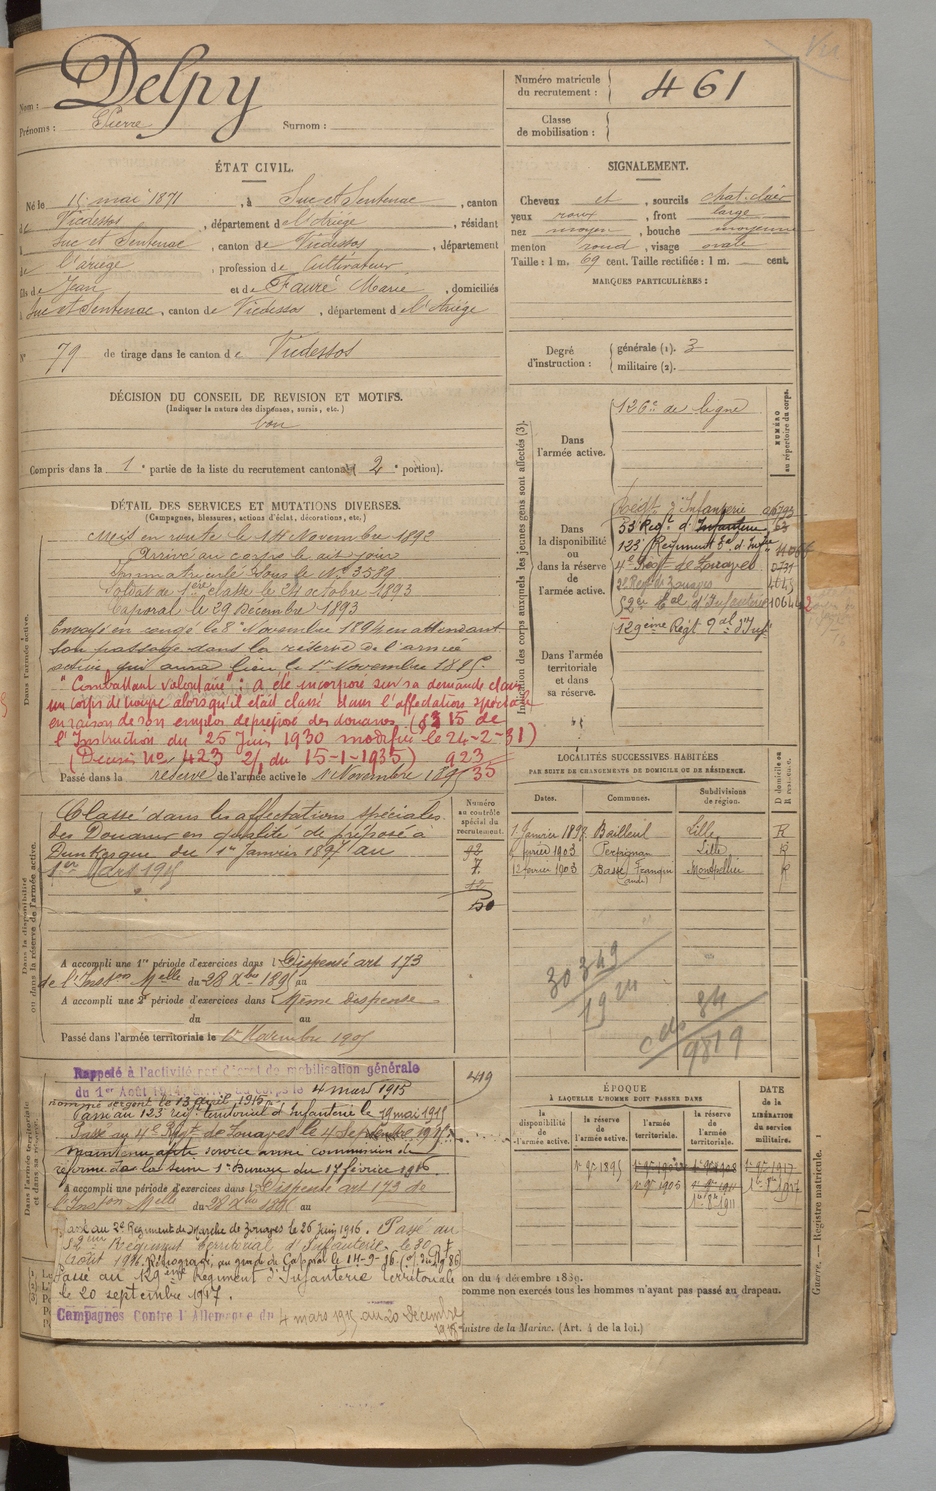 Nom : Delpy
Prénoms : Pierre Surnom :
Numéro matricule du recrutement : 461
Classe de mobilisation :
ÉTAT CIVIL.
Né le 15 mai 1871, à Suc et Sentenac, canton
de Vicdessos, département de l'Ariège, résidant
à Suc et Sentenac, canton de Vicdessos, département
de l'ariège, profession de Cultivateur
fils de Jean et de Fauré Marie, domiciliés
à Suc et Sentenac, canton de Vicdessos, département de l'Ariège
N° 79 de tirage dans le canton de Vicdessos
SIGNALEMENT.
Cheveux et, sourcils chat. clair
yeux roux, front large
nez moyen, bouche moyenne
menton rond, visage ovale
Taille : 1 m. 69 cent. Taille rectifiée : 1 m. cent.
MARQUES PARTICULIÈRES :
Degré d'instruction : générale (1). 3
militaire (2).
DÉCISION DU CONSEIL DE REVISION ET MOTIFS.
(Indiquer la nature des dispenses, sursis, etc.)
bon
Compris dans la 1e partie de la liste du recrutement cantonal (2e portion).
DÉTAIL DES SERVICES ET MUTATIONS DIVERSES.
(Campagnes, blessures, actions d'éclat, décorations, etc.)
Dans l'armée active.
Mis en route le 14 Novembre 1892
Arrivé au corps le dit jour
Immatriculé sous le No 3589
Soldat de 1ère classe le 24 octobre 1893
Caporal le 29 Décembre 1893
Envoyé en congé le 8 Novembre 1894 en attendant
son passage dans la réserve de l'armée
active qui aura lieu le 1er Novembre 1895.
"Combattant volontaire" : a été incorporé sur sa demande dans
un corps de troupe alors qu'il était classé dans l'affectation spéciale
en raison de son emploi de préposé des douanes (§ 315 de
l'Instruction du 25 Juin 1930 modifiée le 24-2-31)
(Décision No 423 2/1 du 15-1-1935) 923
35
Passé dans la réserve de l'armée active le 1 Novembre 1895
Indication des corps auxquels les jeunes gens sont affectés (3).
NUMÉRO au répertoire du corps.
Dans l'armée active.
126e de ligne
Dans la disponibilité ou dans la réserve de l'armée active.
Régt d'Infanterie
53 Régt d'Infanterie
123 Régiment tal d'Infrie
4e Régt de Zouaves
2e Regt de Zouaves
52e tal d'Infanterie
129ème Régt tal d'Inf
Dans l'armée territoriale et dans sa réserve.
Dans la disponibilité ou dans la réserve de l'armée active.
Classé dans les affectations spéciales
des Douanes en qualité de préposé à
Dunkerque du 1er Janvier 1897 au
1er Mars 1915
Numéro au contrôle spécial du recrutement.
92
7.
12
50
A accompli une 1re période d'exercices dans l Dispensé art 173
de l'Inston Melle du 28 Xbre 1895 au
A accompli une 2e période d'exercices dans Même dispense
du au
Passé dans l'armée territoriale le 1er Novembre 1905
LOCALITÉS SUCCESSIVES HABITÉES
PAR SUITE DE CHANGEMENTS DE DOMICILE OU DE RÉSIDENCE.
Dates. Communes. Subdivisions de région. D domicile ou R résidence.
1 Janvier 1897 Bailleul Lille R
février 1903 Perpignan Lille R
12 février 1903 Basse Franqui (aude) Montpellier R
30 349
19
cds 84
9819
Dans l'armée territoriale et dans sa réserve.
Rappelé à l'activité par décret de mobilisation générale
du 1er Août 1914. 4 mars 1915
nommé sergent le 13 avril 1915
Passé au 123 régt territorial d'Infanterie le 19 mai 1915
Passé au 4e Régt de Zouaves le 4 Septembre 1915
maintenu apte service armé commission de
réforme de la Seine 1er Bureau du 17 février 1916.
A accompli une période d'exercices dans l Dispensé art 173 de
l'Inston Melle du 28 Xbre 1895 au
419
Passé au 2e Régiment de Marche de Zouaves le 26 Juin 1916. Passé au
52ème Régiment Territorial d'Infanterie le 30
Août 1916. Rétrogradé au grade de Caporal le 14-9-16
Passé au 129ème Régiment d'Infanterie Territoriale
le 20 septembre 1917.
Campagnes Contre l'Allemagne du 4 mars 1915 au 20 Décembre
ÉPOQUE
À LAQUELLE L'HOMME DOIT PASSER DANS
la disponibilité de l'armée active. la réserve de l'armée active. l'armée territoriale. la réserve de l'armée territoriale. DATE de la LIBÉRATION du service militaire.
1er 9bre 1895 1er 9bre 1917
1er 9bre 1905 1er 9bre 1911
on du 4 décembre 1889.
comme non exercés tous les hommes n'ayant pas passé au drapeau.
inistre de la Marine. (Art. 4 de la loi.)
Guerre. — Registre matricule. 1